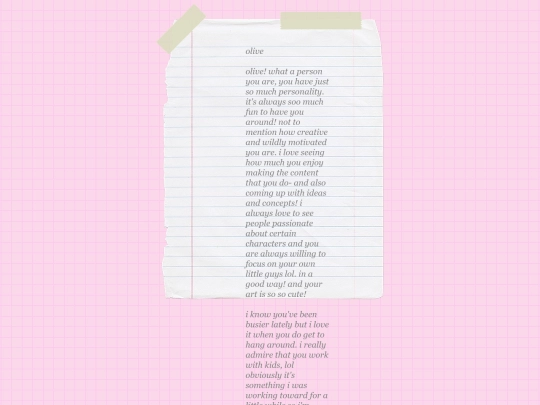 olive
olive! what a person
you are, you have just
so much personality.
it's always soo much
fun to have you
around! not to
mention how creative
and wildly motivated
you are. i love seeing
how much you enjoy
making the content
that you do- and also
coming up with ideas
and concepts! i
always love to see
people passionate
about certain
characters and you
are always willing to
focus on your own
little guys lol. in a
good way! and your
art is so so cute!
i know you've been
busier lately but i love
it when you do get to
hang around. i really
admire that you work
with kids, lol
obviously it's
something i was
working toward for a